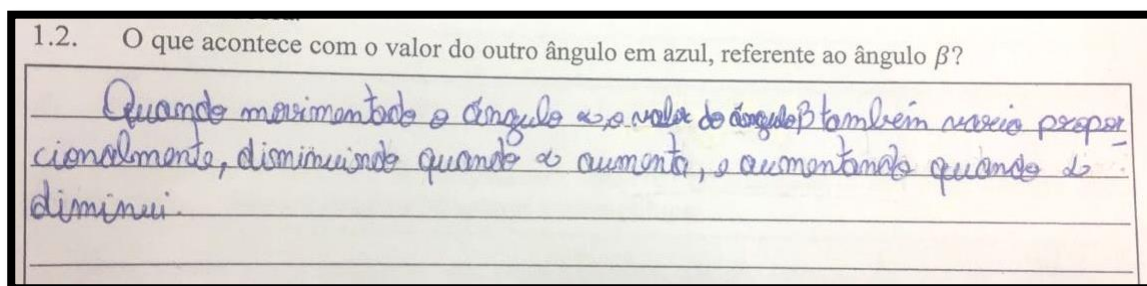 1.2. O que acontece com o valor do outro ângulo em azul, referente ao ângulo β?
Quando movimentado o ângulo α, o valor do ângulo β também varia propor
cionalmente, disminuindo quando α aumenta, e aumentando quando α
diminui.